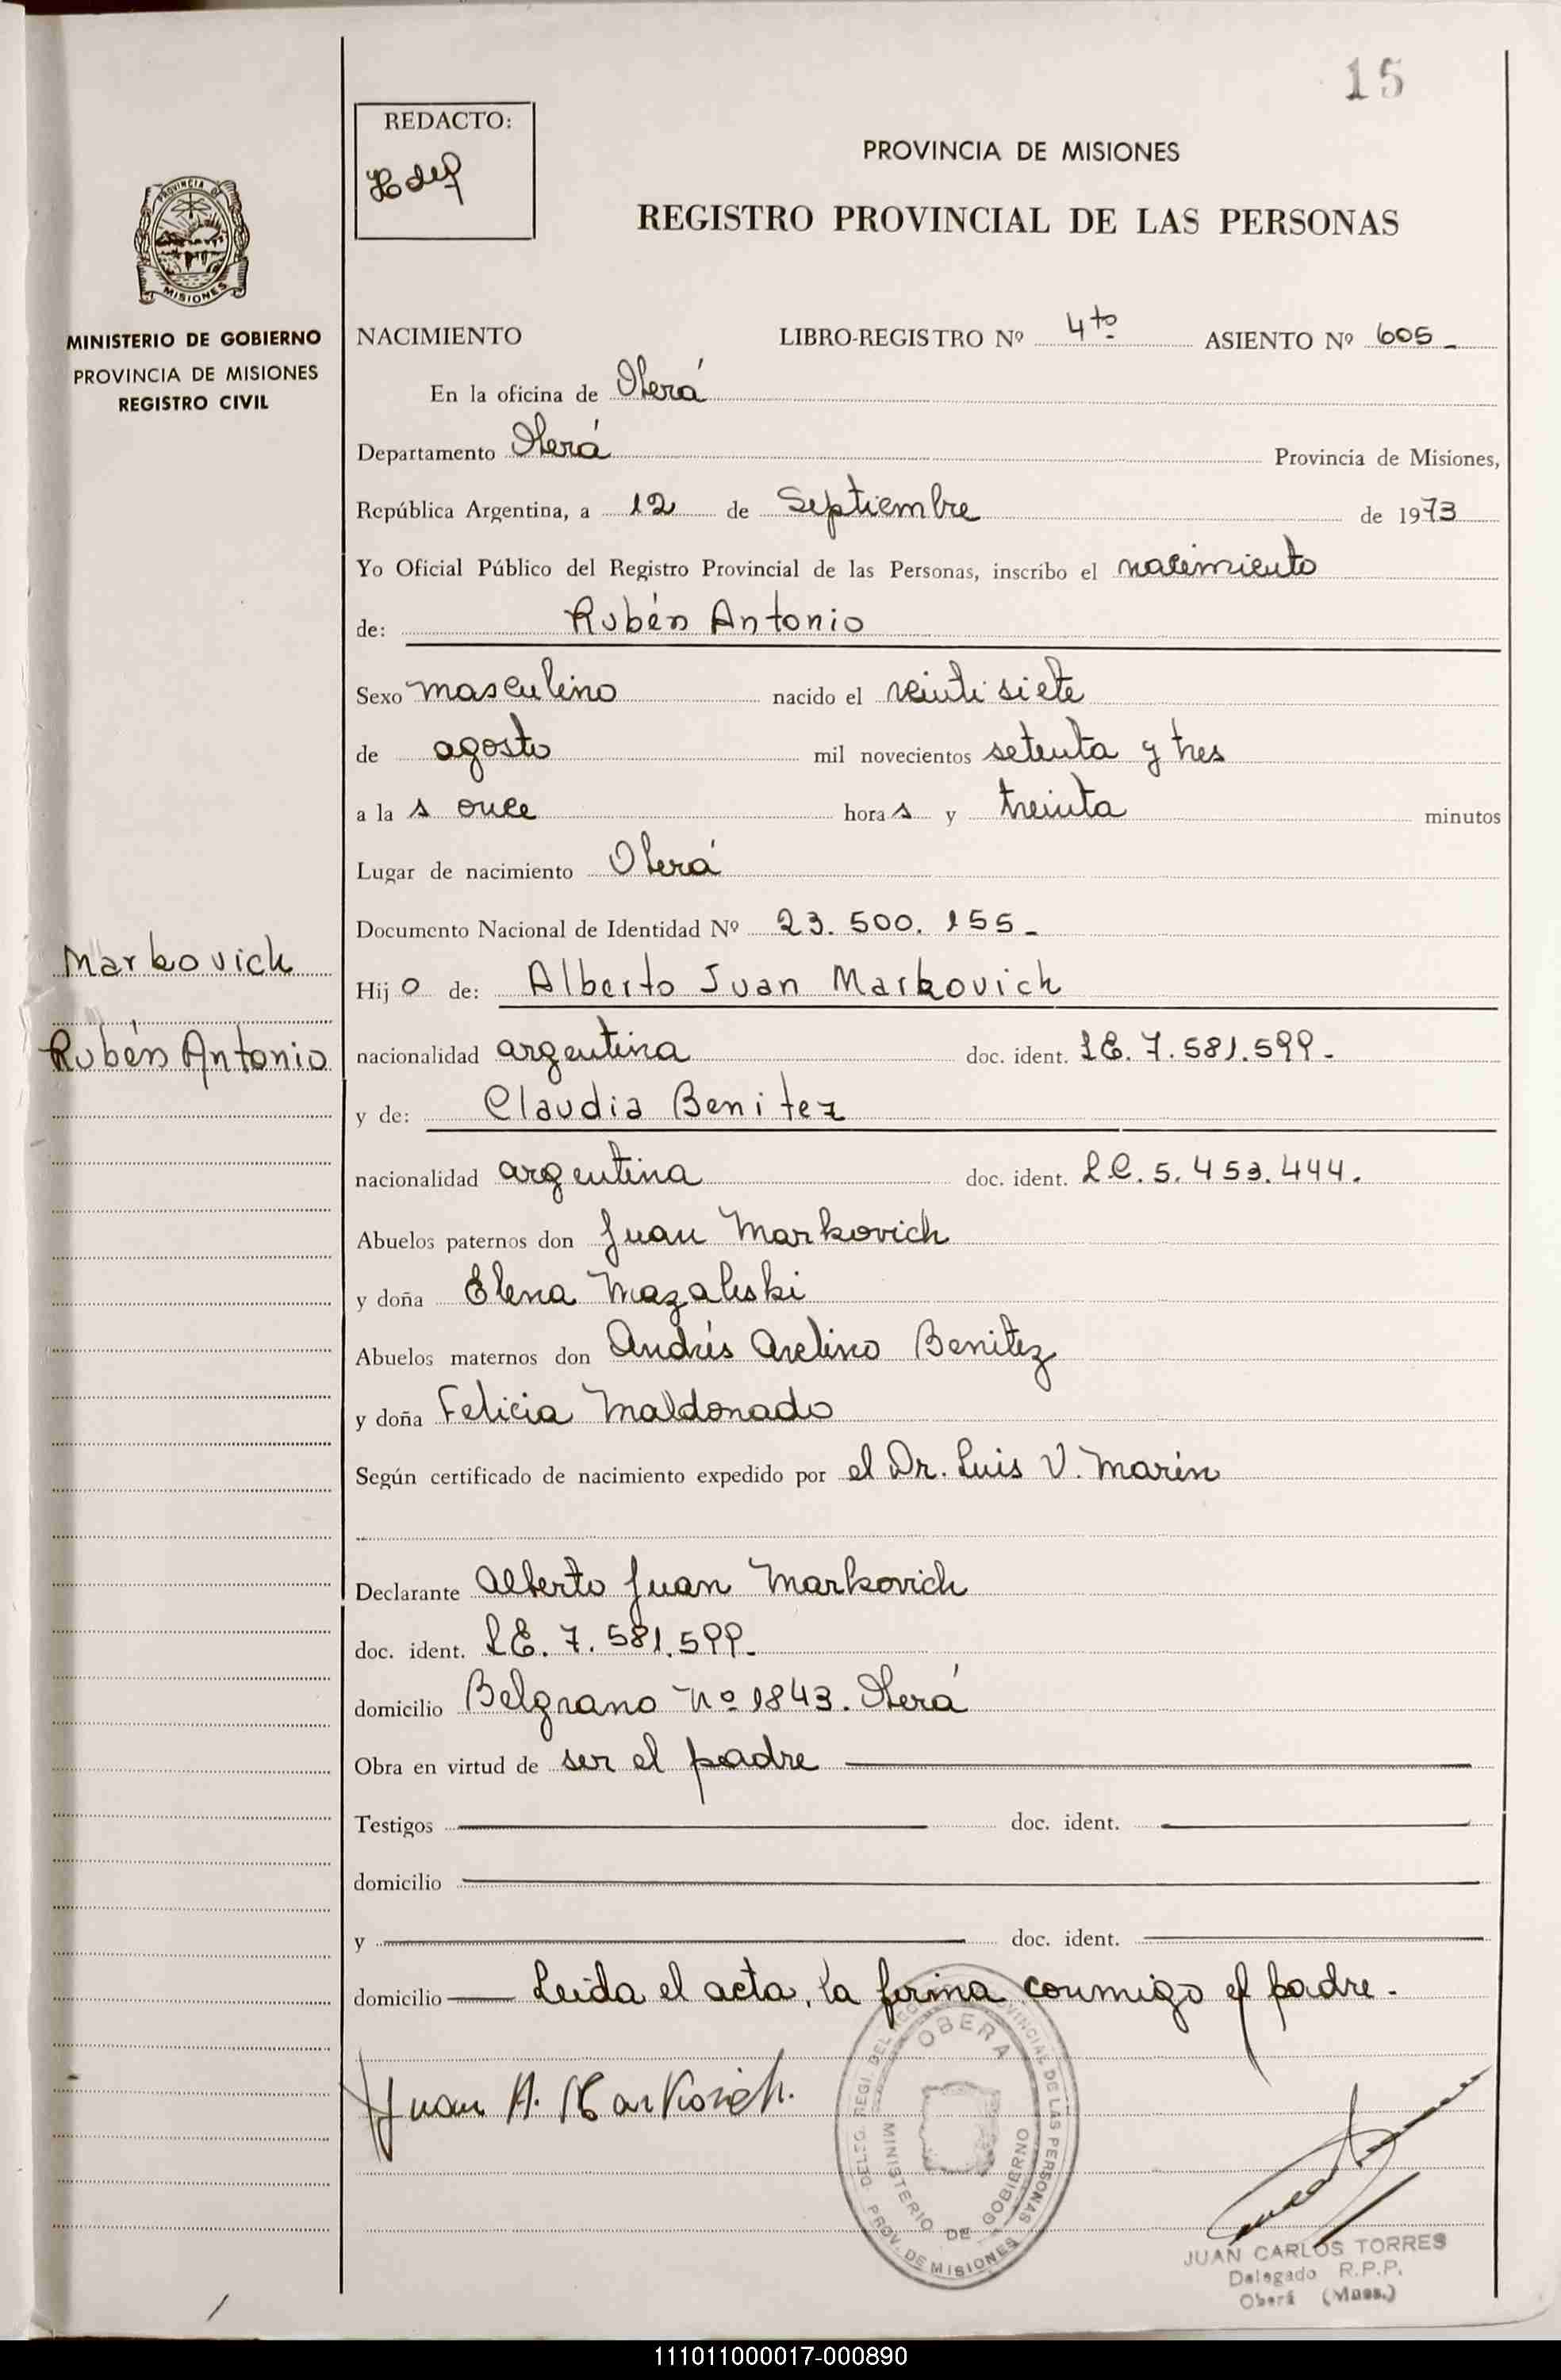 15
REDACTO:
PROVINCIA DE MISIONES
REGISTRO PROVINCIAL DE LAS PERSONAS
PROVINCIA DE
MISIONES
MINISTERIO DE GOBIERNO
PROVINCIA DE MISIONES
REGISTRO CIVIL
NACIMIENTO LIBRO-REGISTRO Nº 4to ASIENTO Nº 605
En la oficina de Oberá
Departamento Oberá Provincia de Misiones,
República Argentina, a 12 de Septiembre de 1973
Yo Oficial Público del Registro Provincial de las Personas, inscribo el nacimiento
de: Rubén Antonio
Sexo masculino nacido el veinti siete
de agosto mil novecientos setenta y tres
a la s once hora s y treinta minutos
Lugar de nacimiento Oberá
Documento Nacional de Identidad Nº 23.500.155-
Markovich
Rubén Antonio
Hij o de: Alberto Juan Markovich
nacionalidad argentina doc. ident. LE. 7.581.599-
y de: Claudia Benitez
nacionalidad argentina doc. ident. L.C. 5.453.444.
Abuelos paternos don Juan Markovich
y doña Elena Mazaleski
Abuelos maternos don Andrés Avelino Benitez
y doña Felicia Maldonado
Según certificado de nacimiento expedido por el Dr. Luis V. Marin
Declarante Alberto Juan Markovich
doc. ident. LE. 7.581.599-
domicilio Belgrano Nº 1843. Oberá
Obra en virtud de ser el padre
Testigos doc. ident.
domicilio
y doc. ident.
domicilio Leida el acta, la firma conmigo el padre.
Juan A. Markovich.
DELEG. REGI. DEL REGISTRO PROVINCIAL DE LAS PERSONAS
OBERA
MINISTERIO DE GOBIERNO
PROV. DE MISIONES
JUAN CARLOS TORRES
Delegado R.P.P.
Oberá (Mnes.)
111011000017-000890